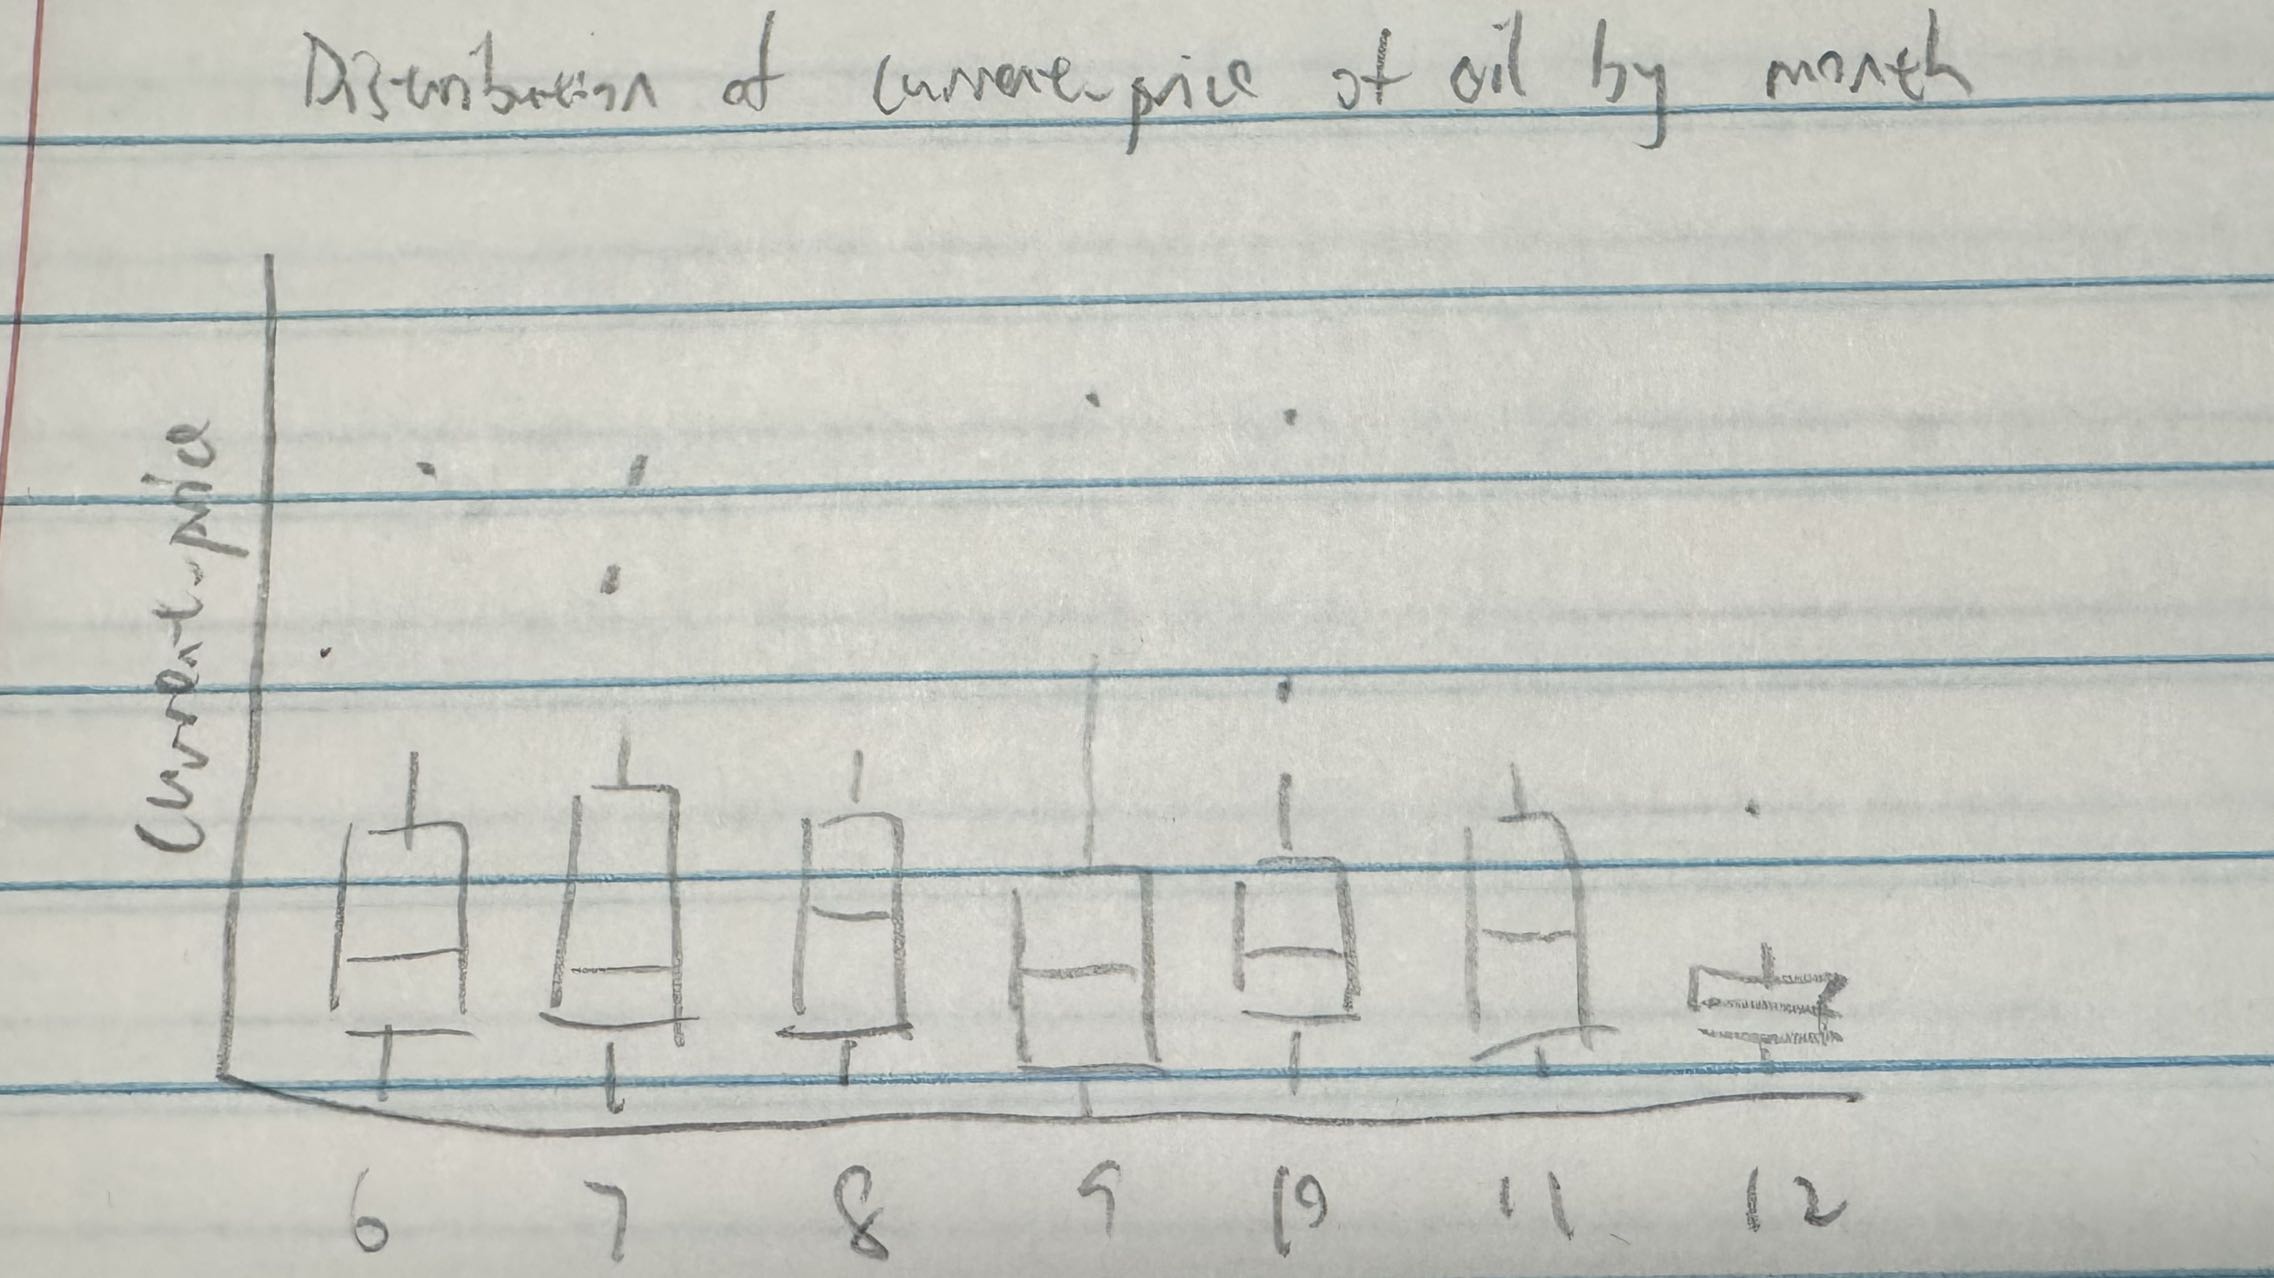 Distribution of current_price of oil by month
Current_price
6 7 8 9 10 11 12